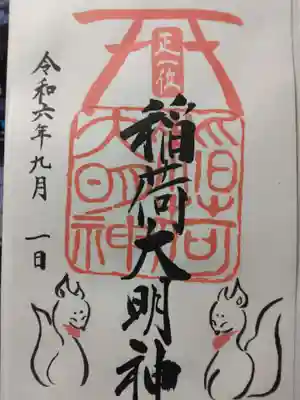 正一位
稲荷
大明神
稲荷大明神
令和六年九月 一日